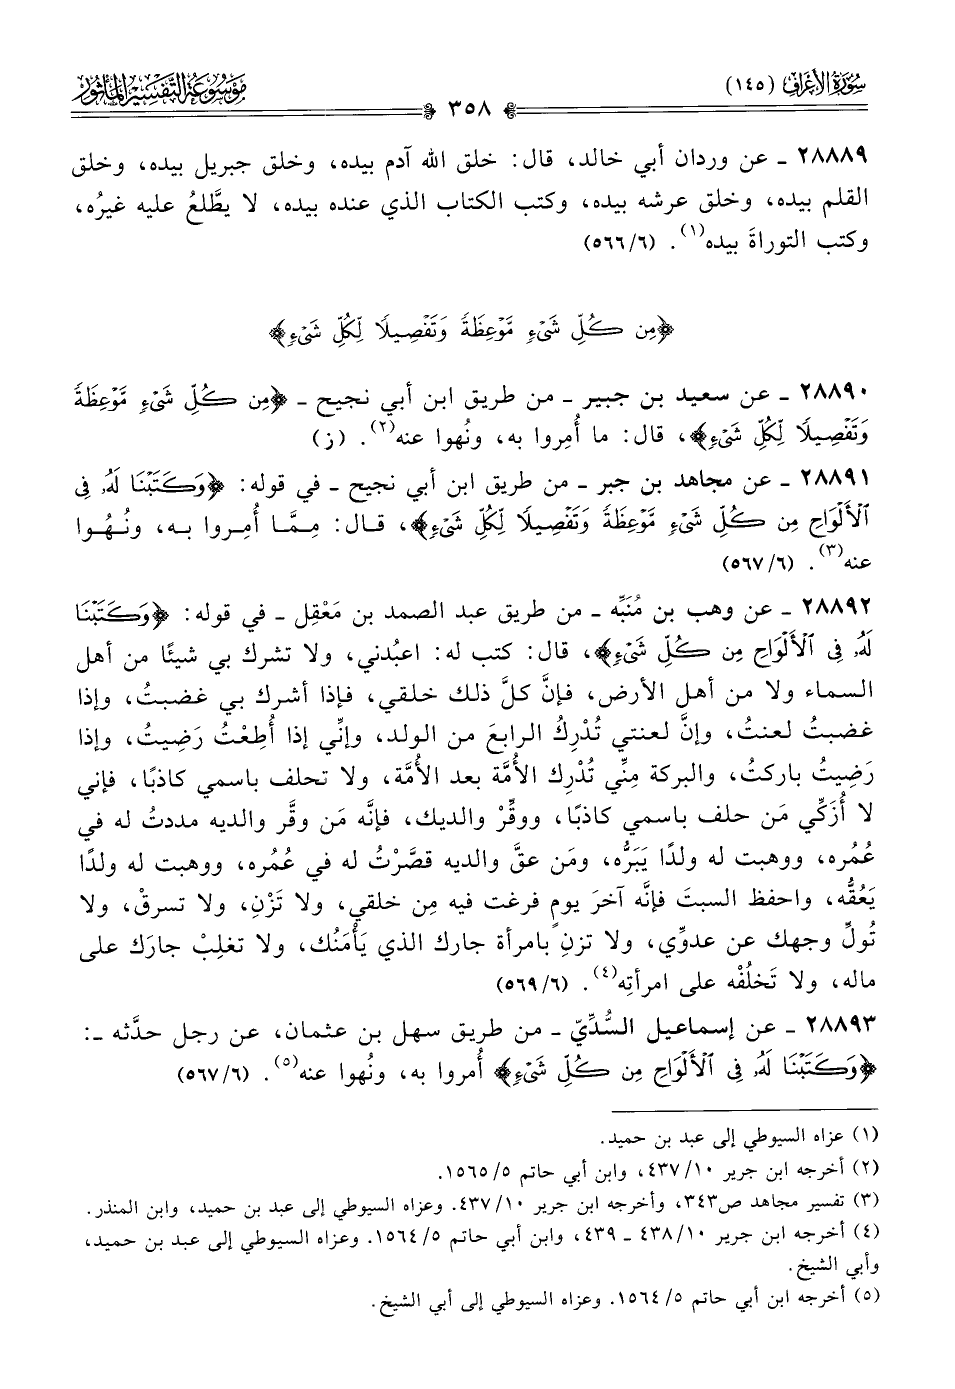 سورة الأعراف (١٤٥)
٣٥٨
موسوعة التفسير المأثور
٢٨٨٨٩ ـ عن وردان أبي خالد، قال: خلق الله آدم بيده، وخلق جبريل بيده، وخلق
القلم بيده، وخلق عرشه بيده، وكتب الكتاب الذي عنده بيده، لا يطَّلعُ عليه غيرُه،
وكتب التوراةَ بيده(١). (٥٦٦/٦)
﴿مِن كُلِّ شَىْءٍ مَّوْعِظَةً وَتَفْصِيلًا لِّكُلِّ شَىْءٍ﴾
٢٨٨٩٠ ـ عن سعيد بن جبير ـ من طريق ابن أبي نجيح ـ ﴿مِن كُلِّ شَىْءٍ مَّوْعِظَةً
وَتَفْصِيلًا لِّكُلِّ شَىْءٍ﴾، قال: ما أُمِروا به، ونُهوا عنه(٢). (ز)
٢٨٨٩١ ـ عن مجاهد بن جبر ـ من طريق ابن أبي نجيح ـ في قوله: ﴿وَكَتَبْنَا لَهُۥ فِى
ٱلْأَلْوَاحِ مِن كُلِّ شَىْءٍ مَّوْعِظَةً وَتَفْصِيلًا لِّكُلِّ شَىْءٍ﴾، قال: مِمَّا أُمِروا به، ونُهُوا
عنه(٣). (٥٦٧/٦)
٢٨٨٩٢ ـ عن وهب بن مُنَبِّه ـ من طريق عبد الصمد بن مَعْقِل ـ في قوله: ﴿وَكَتَبْنَا
لَهُۥ فِى ٱلْأَلْوَاحِ مِن كُلِّ شَىْءٍ﴾، قال: كتب له: اعبُدني، ولا تشرك بي شيئًا من أهل
السماء ولا من أهل الأرض، فإنَّ كلَّ ذلك خلقي، فإذا أشرك بي غضبتُ، وإذا
غضبتُ لعنتُ، وإنَّ لعنتي تُدْرِكُ الرابعَ من الولد، وإنِّي إذا أُطِعْتُ رَضِيتُ، وإذا
رَضِيتُ باركتُ، والبركة مِنِّي تُدْرِك الأمَّة بعد الأُمَّة، ولا تحلف باسمي كاذبًا، فإني
لا أُزَكِّي مَن حلف باسمي كاذبًا، ووقِّرْ والديك، فإنَّه مَن وقَّر والديه مددتُ له في
عُمُره، ووهبت له ولدًا يَبَرُّه، ومَن عقَّ والديه قصَّرْتُ له في عُمُره، ووهبت له ولدًا
يَعُقُّه، واحفظ السبتَ فإنَّه آخرَ يومٍ فرغت فيه مِن خلقي، ولا تَزْنِ، ولا تسرقْ، ولا
تُولِّ وجهك عن عدوِّي، ولا تزنِ بامرأة جارك الذي يَأْمَنُك، ولا تغلِبْ جارَك على
ماله، ولا تَخلُفْه على امرأتِه(٤). (٥٦٩/٦)
٢٨٨٩٣ ـ عن إسماعيل السُّدِّيّ ـ من طريق سهل بن عثمان، عن رجل حدَّثه ـ:
﴿وَكَتَبْنَا لَهُۥ فِى ٱلْأَلْوَاحِ مِن كُلِّ شَىْءٍ﴾ أُمروا به، ونُهوا عنه(٥). (٥٦٧/٦)
(١) عزاه السيوطي إلى عبد بن حميد.
(٢) أخرجه ابن جرير ٤٣٧/١٠، وابن أبي حاتم ١٥٦٥/٥.
(٣) تفسير مجاهد ص٣٤٣، وأخرجه ابن جرير ٤٣٧/١٠. وعزاه السيوطي إلى عبد بن حميد، وابن المنذر.
(٤) أخرجه ابن جرير ٤٣٨/١٠ ـ ٤٣٩، وابن أبي حاتم ١٥٦٤/٥. وعزاه السيوطي إلى عبد بن حميد،
وأبي الشيخ.
(٥) أخرجه ابن أبي حاتم ١٥٦٤/٥. وعزاه السيوطي إلى أبي الشيخ.